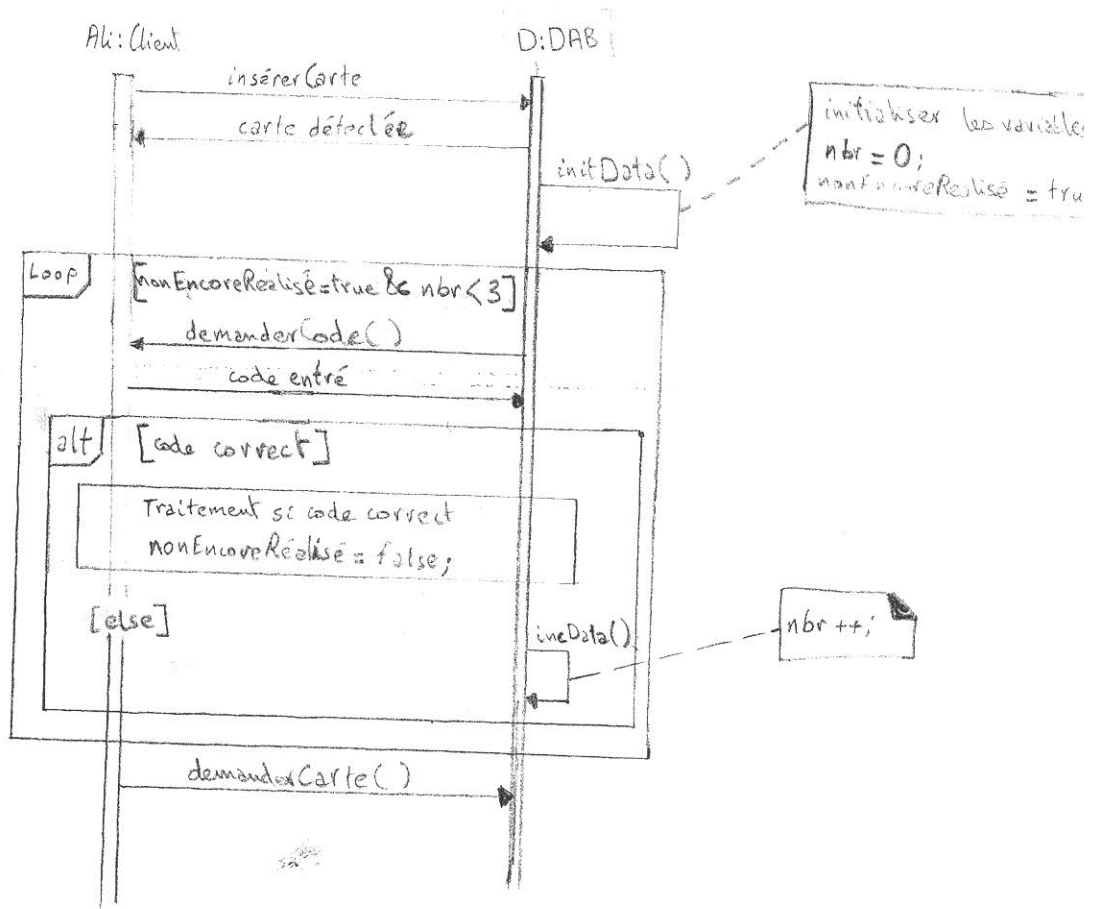 Ali:Client
D:DAB
insérerCarte
carte détectée
initData()
initialiser les variables
nbr = 0;
nonEncoreRealisé = tru
Loop
[nonEncoreRéalisé=true && nbr<3]
demanderCode()
code entré
alt
[code correct]
Traitement si code correct
nonEncoreRéalisé = false;
[else]
incData()
nbr ++;
demanderCarte()